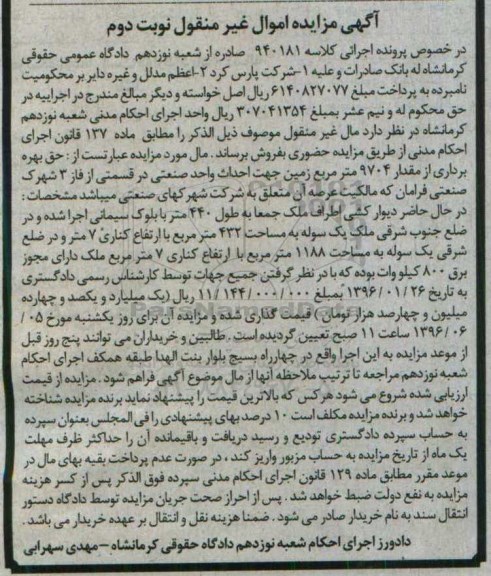 آگهی مزایده اموال غیر منقول نوبت دوم
در خصوص پرونده اجرائی کلاسه ۹۴۰۱۸۱ صادره از شعبه نوزدهم دادگاه عمومی حقوقی
کرمانشاه له بانک صادرات و علیه ۱-شرکت پارس کرد ۲-اعظم مدلل و غیره دایر بر محکومیت
نامبرده به پرداخت مبلغ ۶۱۴۰۸۲۷۰۷۷ ریال اصل خواسته و دیگر مبالغ مندرج در اجراییه در
حق محکوم له و نیم عشر بمبلغ ۳۰۷۰۴۱۳۵۴ ریال واحد اجرای احکام مدنی شعبه نوزدهم
کرمانشاه در نظر دارد مال غیر منقول موصوف ذیل الذکر را مطابق ماده ۱۳۷ قانون اجرای
احکام مدنی از طریق مزایده حضوری بفروش برساند . مال مورد مزایده عبارتست از : حق بهره
برداری از مقدار ۹۷۰۴ متر مربع زمین جهت احداث واحد صنعتی در قسمتی از فاز ۳ شهرک
صنعتی فرامان که مالکیت عرصه آن متعلق به شرکت شهرکهای صنعتی میباشد مشخصات :
در حال حاضر دیوار کشی اطراف ملک جمعا به طول ۴۴۰ متر با بلوک سیمانی اجرا شده و در
ضلع جنوب شرقی ملک یک سوله به مساحت ۴۳۲ متر مربع با ارتفاع کناری ۷ متر و در ضلع
شرقی یک سوله به مساحت ۱۱۸۸ متر مربع با ارتفاع کناری ۷ متر مربع ملک دارای مجوز
برق ۸۰۰ کیلو وات بوده که با در نظر گرفتن جمیع جهات توسط کارشناس رسمی دادگستری
به تاریخ ۱۳۹۶/۰۱/۲۶ بمبلغ ۱۱/۱۴۴/۰۰۰/۰۰۰ ریال (یک میلیارد و یکصد و چهارده
میلیون و چهارصد هزار تومان) قیمت گذاری شده و مزایده آن برای روز یکشنبه مورخ ۰۵/
۱۳۹۶/۰۶ ساعت ۱۱ صبح تعیین گردیده است . طالبین و خریداران می توانند پنج روز قبل
از موعد مزایده به این اجرا واقع در چهارراه بسیج بلوار بنت الهدا طبقه همکف اجرای احکام
شعبه نوزدهم مراجعه تا ترتیب ملاحظه آنها از مال موضوع آگهی فراهم شود . مزایده از قیمت
ارزیابی شده شروع می شود هر کس که بالاترین قیمت را پیشنهاد نماید برنده مزایده شناخته
خواهد شد و برنده مزایده مکلف است ۱۰ درصد بهای پیشنهادی را فی المجلس بعنوان سپرده
به حساب سپرده دادگستری تودیع و رسید دریافت و باقیمانده آن را حداکثر ظرف مهلت
یک ماه از تاریخ مزایده به حساب مزبور واریز کند ، در صورت عدم پرداخت بقیه بهای مال در
موعد مقرر مطابق ماده ۱۲۹ قانون اجرای احکام مدنی سپرده فوق الذکر پس از کسر هزینه
مزایده به نفع دولت ضبط خواهد شد . پس از احراز صحت جریان مزایده توسط دادگاه دستور
انتقال سند به نام خریدار صادر می شود . ضمنا هزینه نقل و انتقال بر عهده خریدار می باشد .
دادورز اجرای احکام شعبه نوزدهم دادگاه حقوقی کرمانشاه - مهدی سهرابی